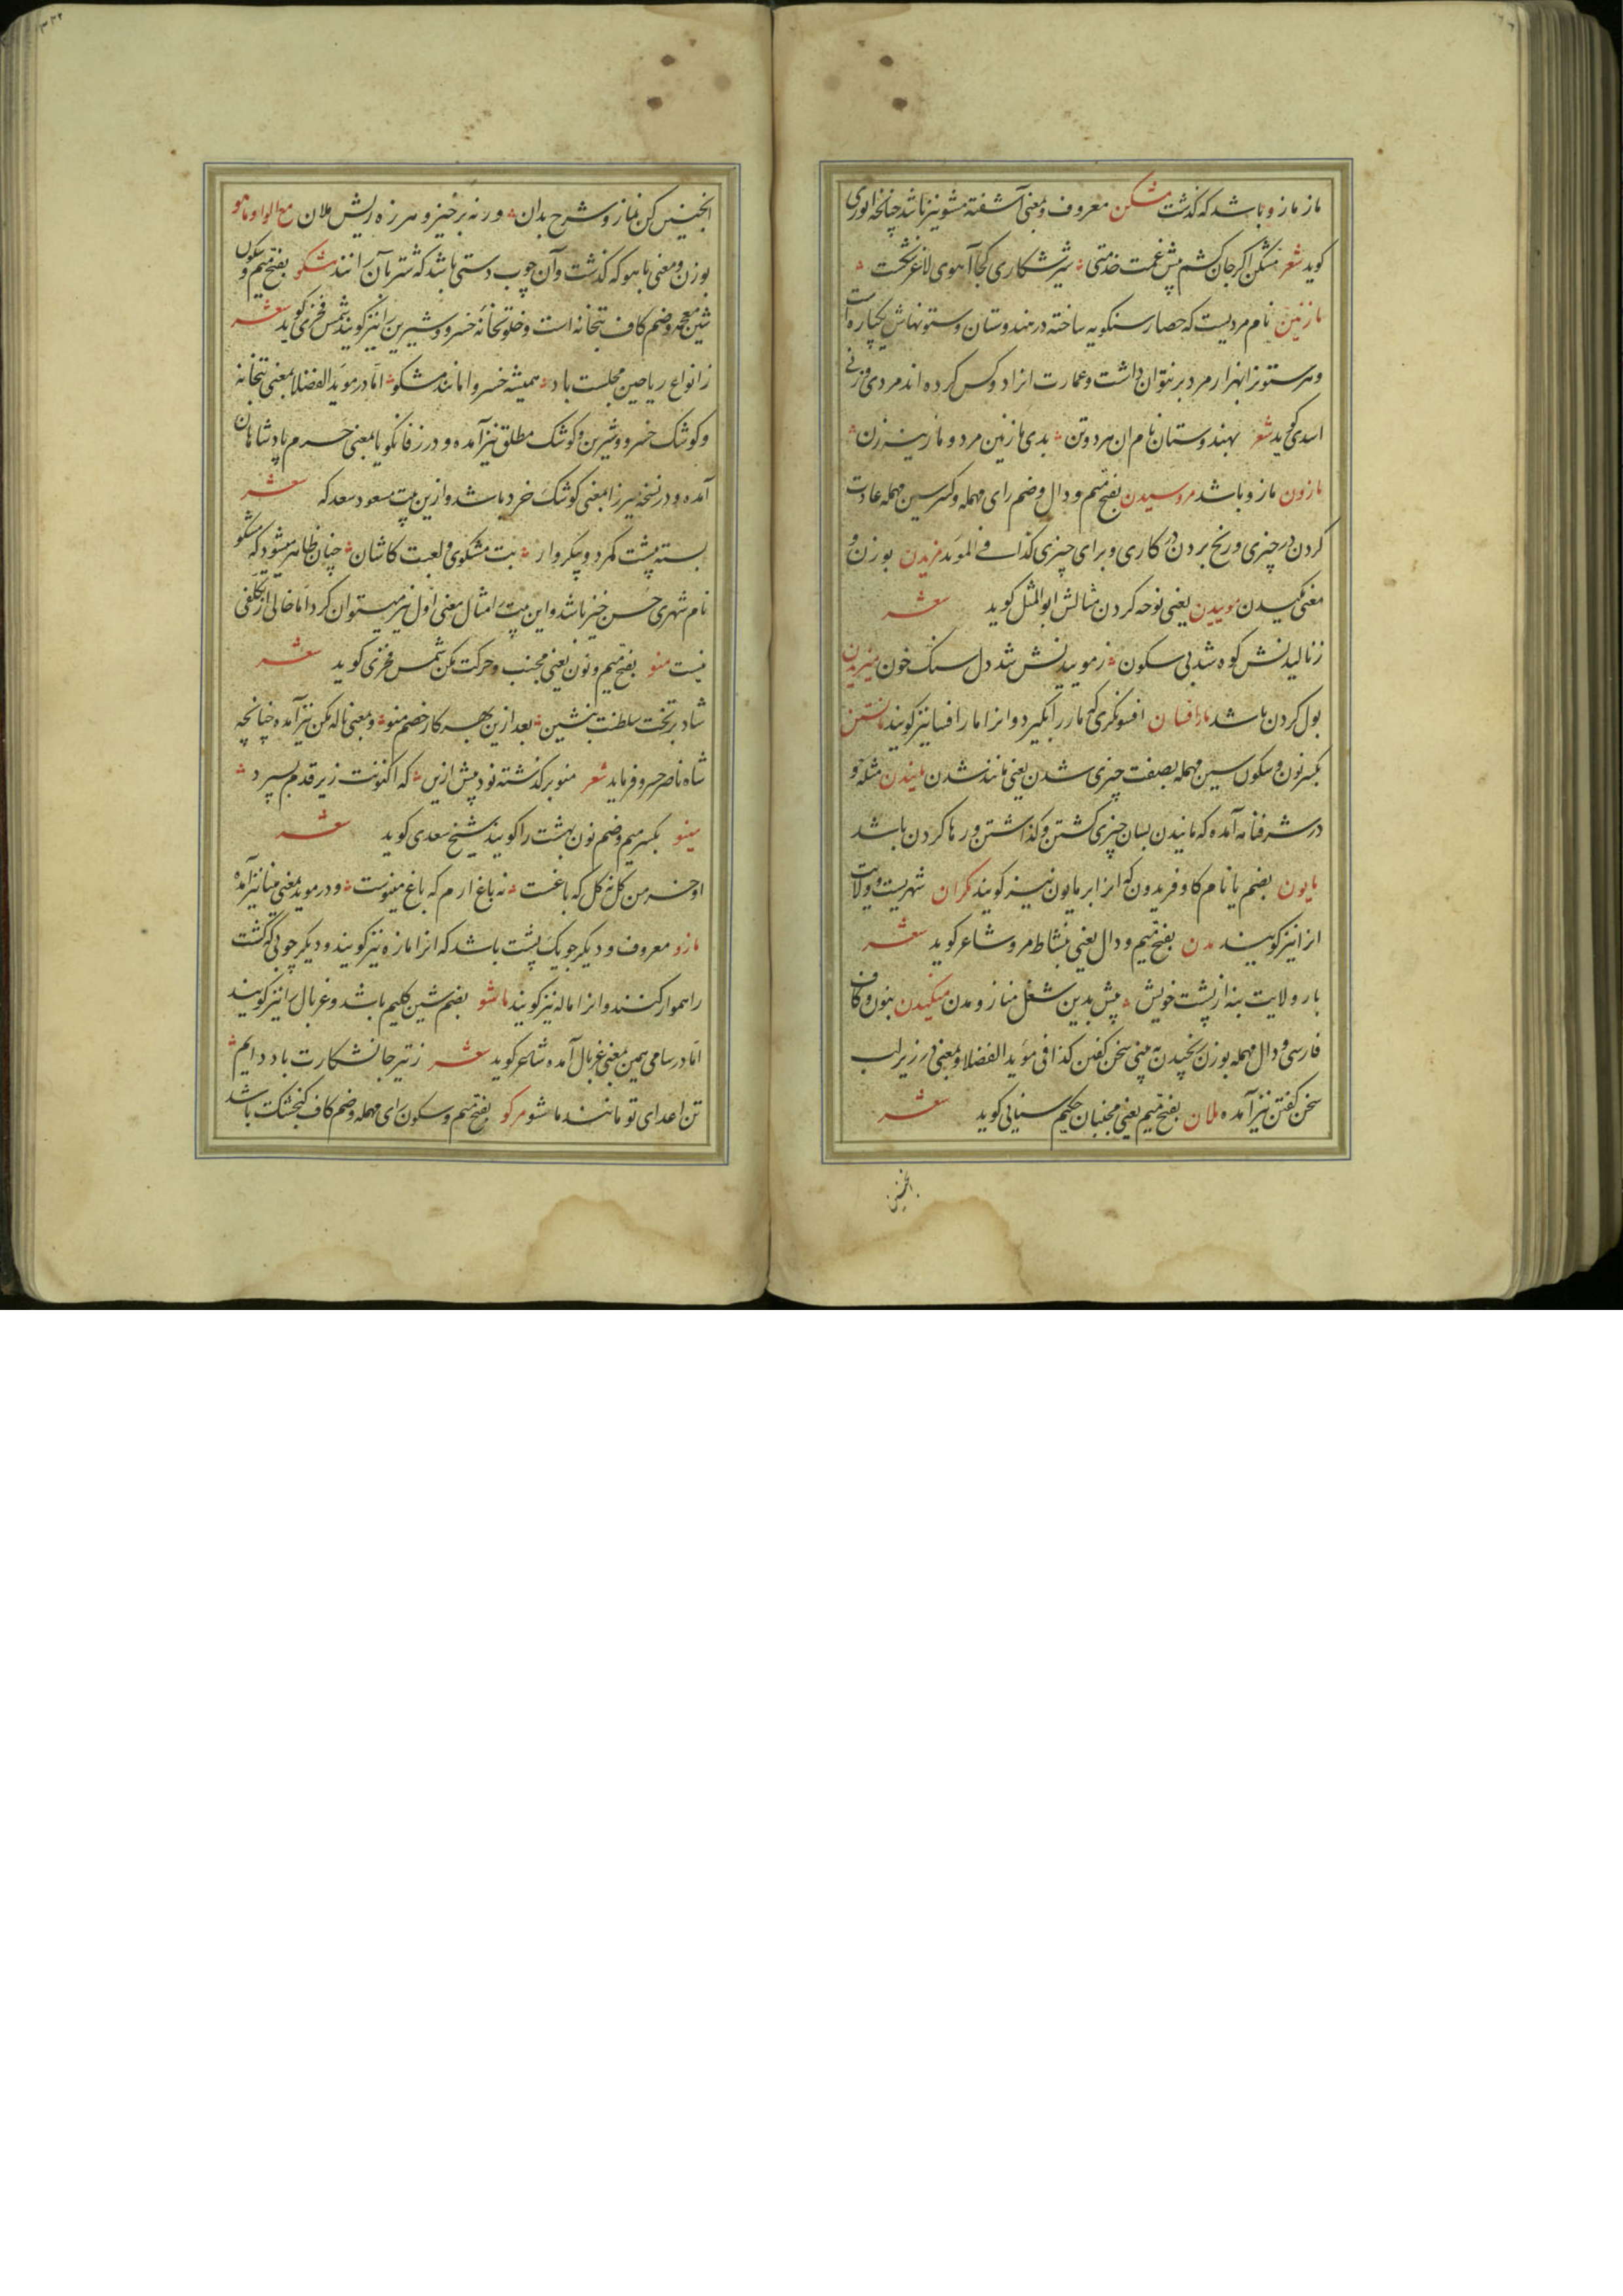 ماز ماز و باشد که گذشت مشکن معروف و بمعنی آشفته مشو نیز باشد چنانچه انوری
کوید شعر مشکن اکر جان کشم پیش غمت خدمتی شیر شکاری کجا آهوی لاغر نخست
مازنین نام مردیست که حصار سنکویه ساخته در هندوستان و ستونهاش یکپاره است
و هر ستونرا بهزار مرد بر نتوان داشت و عمارت انرا دو کس کرده اند مردی و زنی
اسدی کوید شعر بهندوستان نام ان هر دو تن بدی مازنین مرد و مازینه زن
مازون مازو باشد مروسیدن بفتح میم و دال و ضم رای مهمله و کسر سین مهمله عادت
کردن در چیزی و رنج بردن در کاری و برای چیزی کذا فی الموید مزیدن بوزن و
معنی مکیدن موییدن یعنی نوحه کردن مثالش ابوالمثل کوید شعر
ز نالیدنش کوه شد بی سکون ز موییدنش شد دل سنک خون میزیدن
بول کردن باشد مارافسان افسونکری که مار را بکیرد و انرا مارافسا نیز کویند مانستن
بکسر نون و سکون سین مهمله بصفت چیزی شدن یعنی مانند شدن مانیدن مثله و
در شرفنامه آمده که مانیدن بسان چیزی کشتن و گذاشتن و رها کردن باشد
مایون بضم یا نام کاو فریدون که انرا برمایون نیز کویند مکران شهریست و ولایت
انرا نیز کویند مدن بفتح میم و دال یعنی بنشاط مرو شاعر کوید شعر
بار ولایت بنه از پشت خویش پیش بدین شغل مناز و مدن منکیدن بنون و کاف
فارسی و دال مهمله بوزن بخیدن به بینی سخن کفتن کذا فی مؤید الفضلا و بمعنی در زیر لب
سخن کفتن نیز آمده ملان بفتح میم یعنی مجنبان حکیم سنایی کوید شعر
انجنین
انجنین کن نماز و شرح بدان ورنه برخیز و هرزه ریش ملان مع الواو ماهو
بوزن و معنی باهو که گذشت و آن چوب دستی باشد که شتر بآن رانند مشکو بفتح میم و سکون
شین معجمه و ضم کاف بتخانه است و خلوتخانهٔ خسرو و شیرین را نیز کویند شمس فخری کوید شعر
ز انواع ریاحین مجلست باد همیشه خسروا مانند مشکو اما در موید الفضلا بمعنی بتخانه
و کوشک خسرو و شیرین و کوشک مطلق نیز آمده و در زفانکویا بمعنی حرم پادشاهان
آمده و در نسخه میرزا بمعنی کوشک خرد باشد و ازین بیت مسعود سعد که شعر
بسته پشت کمرد و پیکروار بت مشکوی و لعبت کاشان چنان ظاهر میشود که مشکو
نام شهری حسن خیز باشد و این بیت امثال معنی اول نیز میتوان کرد اما خالی از تکلفی
نیست منو بفتح میم و نون یعنی مجنب و حرکت مکن شمس فخری کوید شعر
شاد بر تخت سلطنت بنشین بعد ازین بهر کار خصم منو و بمعنی ناله مکن نیز آمده چنانچه
شاه ناصر خسرو فرماید شعر منو بر گذشته نود پیش ازین که اکنونت زیر قدم بسپرد
مینو بکسر میم و ضم نون بهشت را کویند شیخ سعدی کوید شعر
او خرمن کل نه کل که باغست نه باغ ارم که باغ مینوست و در موید بمعنی مینا نیز آمده
مازو معروف و دیکر جویک پشت باشد که انرا مازه نیز کویند و دیکر چوبی که کشت
را هموار کنند و انرا ماله نیز کویند ماشو بضم شین کلیم باشد و غربال را نیز کویند
اما در سامی بهمین بمعنی غربال آمده شاعر کوید شعر ز تیر جانشکارت باد دایم
تن اعدای تو مانند ماشو مرکو بفتح میم و سکون رای مهمله و ضم کاف کنجشک باشد